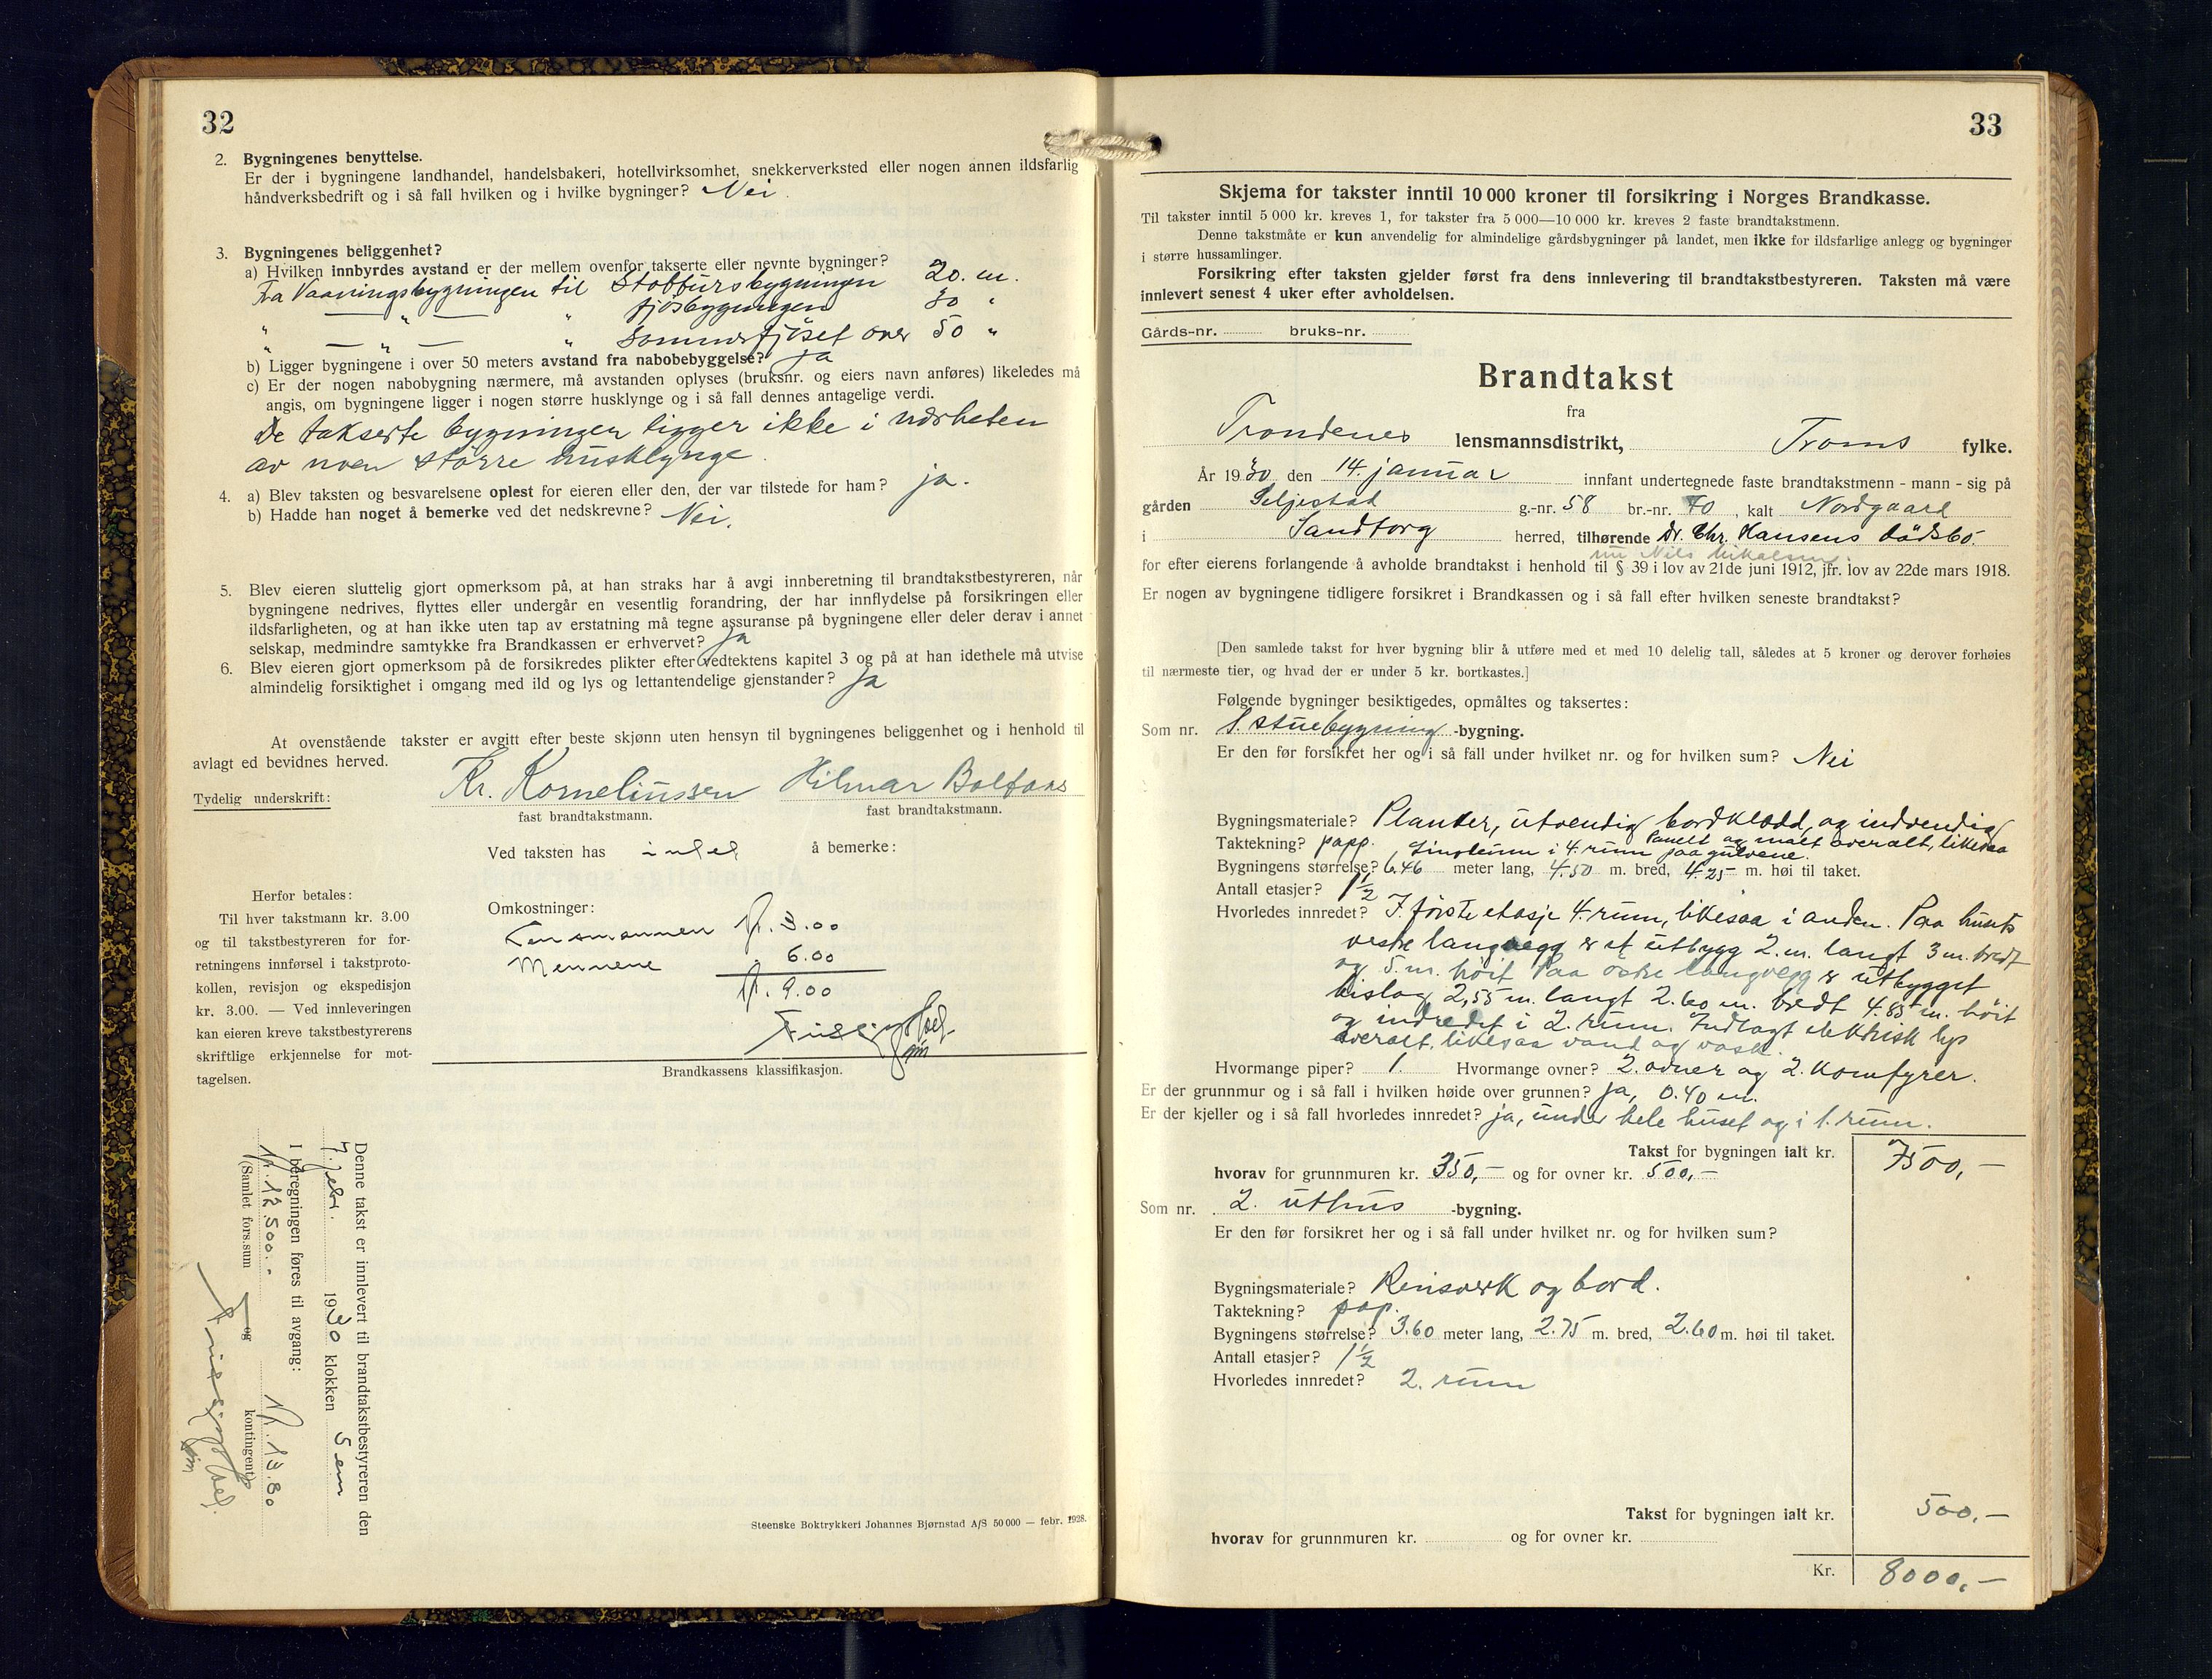 32
2. Bygningenes benyttelse.
Er der i bygningene landhandel, handelsbakeri, hotellvirksomhet, snekkerverksted eller nogen annen ildsfarlig
håndverksbedrift og i så fall hvilken og i hvilke bygninger? Nei.
3. Bygningenes beliggenhet?
a) Hvilken innbyrdes avstand er der mellem ovenfor takserte eller nevnte bygninger?
Fra Vaaningsbygningen til Stabbursbygningen 20. m.
" — " — " fjösbygningen 30 "
" — " — " sommerfjöset over 50 "
b) Ligger bygningene i over 50 meters avstand fra nabobebyggelse? ja
c) Er der nogen nabobygning nærmere, må avstanden oplyses (bruksnr. og eiers navn anføres) likeledes må
angis, om bygningene ligger i nogen større husklynge og i så fall dennes antagelige verdi.
De takserte bygninger ligger ikke i nærheten
av noen större husklynge.
4. a) Blev taksten og besvarelsene oplest for eieren eller den, der var tilstede for ham? ja.
b) Hadde han noget å bemerke ved det nedskrevne? Nei.
5. Blev eieren sluttelig gjort opmerksom på, at han straks har å avgi innberetning til brandtakstbestyreren, når
bygningene nedrives, flyttes eller undergår en vesentlig forandring, der har innflydelse på forsikringen eller
ildsfarligheten, og at han ikke uten tap av erstatning må tegne assuranse på bygningene eller deler derav i annet
selskap, medmindre samtykke fra Brandkassen er erhvervet? ja
6. Blev eieren gjort opmerksom på de forsikredes plikter efter vedtektens kapitel 3 og på at han idethele må utvise
almindelig forsiktighet i omgang med ild og lys og lettantendelige gjenstander? ja
At ovenstående takster er avgitt efter beste skjønn uten hensyn til bygningenes beliggenhet og i henhold til
avlagt ed bevidnes herved.
Tydelig underskrift: Kr. Korneliussen Hilmar
fast brandtakstmann. fast brandtakstmann.
Ved taksten has intet å bemerke:
Herfor betales:
Til hver takstmann kr. 3.00
og til takstbestyreren for for-
retningens innførsel i takstproto-
kollen, revisjon og ekspedisjon
kr. 3.00. — Ved innleveringen
kan eieren kreve takstbestyrerens
skriftlige erkjennelse for mot-
tagelsen.
Omkostninger:
Lensmannen kr. 3.00
Mennene 6.00
kr. 9.00
Brandkassens klassifikasjon.
Denne takst er innlevert til brandtakstbestyreren den
7. febr. 1930 klokken 5 em
I beregningen føres til avgang:
kr. 12500.- og kr. 13.80
(Samlet fors.sum kontingent)
Steenske Boktrykkeri Johannes Bjørnstad A/S 50 000 — febr. 1928.
33
Skjema for takster inntil 10 000 kroner til forsikring i Norges Brandkasse.
Til takster inntil 5 000 kr. kreves 1, for takster fra 5 000—10 000 kr. kreves 2 faste brandtakstmenn.
Denne takstmåte er kun anvendelig for almindelige gårdsbygninger på landet, men ikke for ildsfarlige anlegg og bygninger
i større hussamlinger.
Forsikring efter taksten gjelder først fra dens innlevering til brandtakstbestyreren. Taksten må være
innlevert senest 4 uker efter avholdelsen.
Gårds-nr. bruks-nr.
Brandtakst
fra
Trondenes lensmannsdistrikt, Troms fylke.
År 1930 den 14. januar innfant undertegnede faste brandtakstmenn - mann - sig på
gården Seljestad g.-nr. 58 br.-nr. 70, kalt Nordgaard
i Sandtorg herred, tilhørende Dr. Chr. Hansens dödsbo.
nu Nils Mikalsen.
for efter eierens forlangende å avholde brandtakst i henhold til § 39 i lov av 21de juni 1912, jfr. lov av 22de mars 1918.
Er nogen av bygningene tidligere forsikret i Brandkassen og i så fall efter hvilken seneste brandtakst?
[Den samlede takst for hver bygning blir å utføre med et med 10 delelig tall, således at 5 kroner og derover forhøies
til nærmeste tier, og hvad der er under 5 kr. bortkastes.]
Følgende bygninger besiktigedes, opmåltes og taksertes:
Som nr. 1. stuebygning -bygning.
Er den før forsikret her og i så fall under hvilket nr. og for hvilken sum? Nei
Bygningsmateriale? Planker, utvendig bordklædd, og indvendig
panelt og malt overalt, likesaa
Taktekning? papp. Linoleum i 4. rum paa gulvene.
Bygningens størrelse? 6.46 meter lang, 4.50 m. bred, 4.25 m. høi til taket.
Antall etasjer? 1 1/2
Hvorledes innredet? I förste etasje 4. rum, likesaa i anden. Paa husets
vestre langvegg er et utbygg 2. m. langt 3 m. bredt
og 5. m. höit Paa östre langvegg er utbygget
bislag 2,55 m. langt 2.60 m. bredt 4.85 m. höit
og indredet i 2. rum. Indlagt elektrisk lys
overalt, likesaa vand og vask.
Hvormange piper? 1. Hvormange ovner? 2. ovner og 2. komfyrer.
Er der grunnmur og i så fall i hvilken høide over grunnen? ja, 0.40 m.
Er der kjeller og i så fall hvorledes innredet? ja, under hele huset og i 1. rum.
Takst for bygningen ialt kr. 7500,-
hvorav for grunnmuren kr. 350,- og for ovner kr. 500,-
Som nr. 2. uthus -bygning.
Er den før forsikret her og i så fall under hvilket nr. og for hvilken sum?
Bygningsmateriale? Reisverk og bord.
Taktekning? pap.
Bygningens størrelse? 3.60 meter lang, 2.75 m. bred, 2.60 m. høi til taket.
Antall etasjer? 1 1/2
Hvorledes innredet? 2. rum
Takst for bygningen ialt kr. 500.-
hvorav for grunnmuren kr. og for ovner kr.
Kr. 8000,-